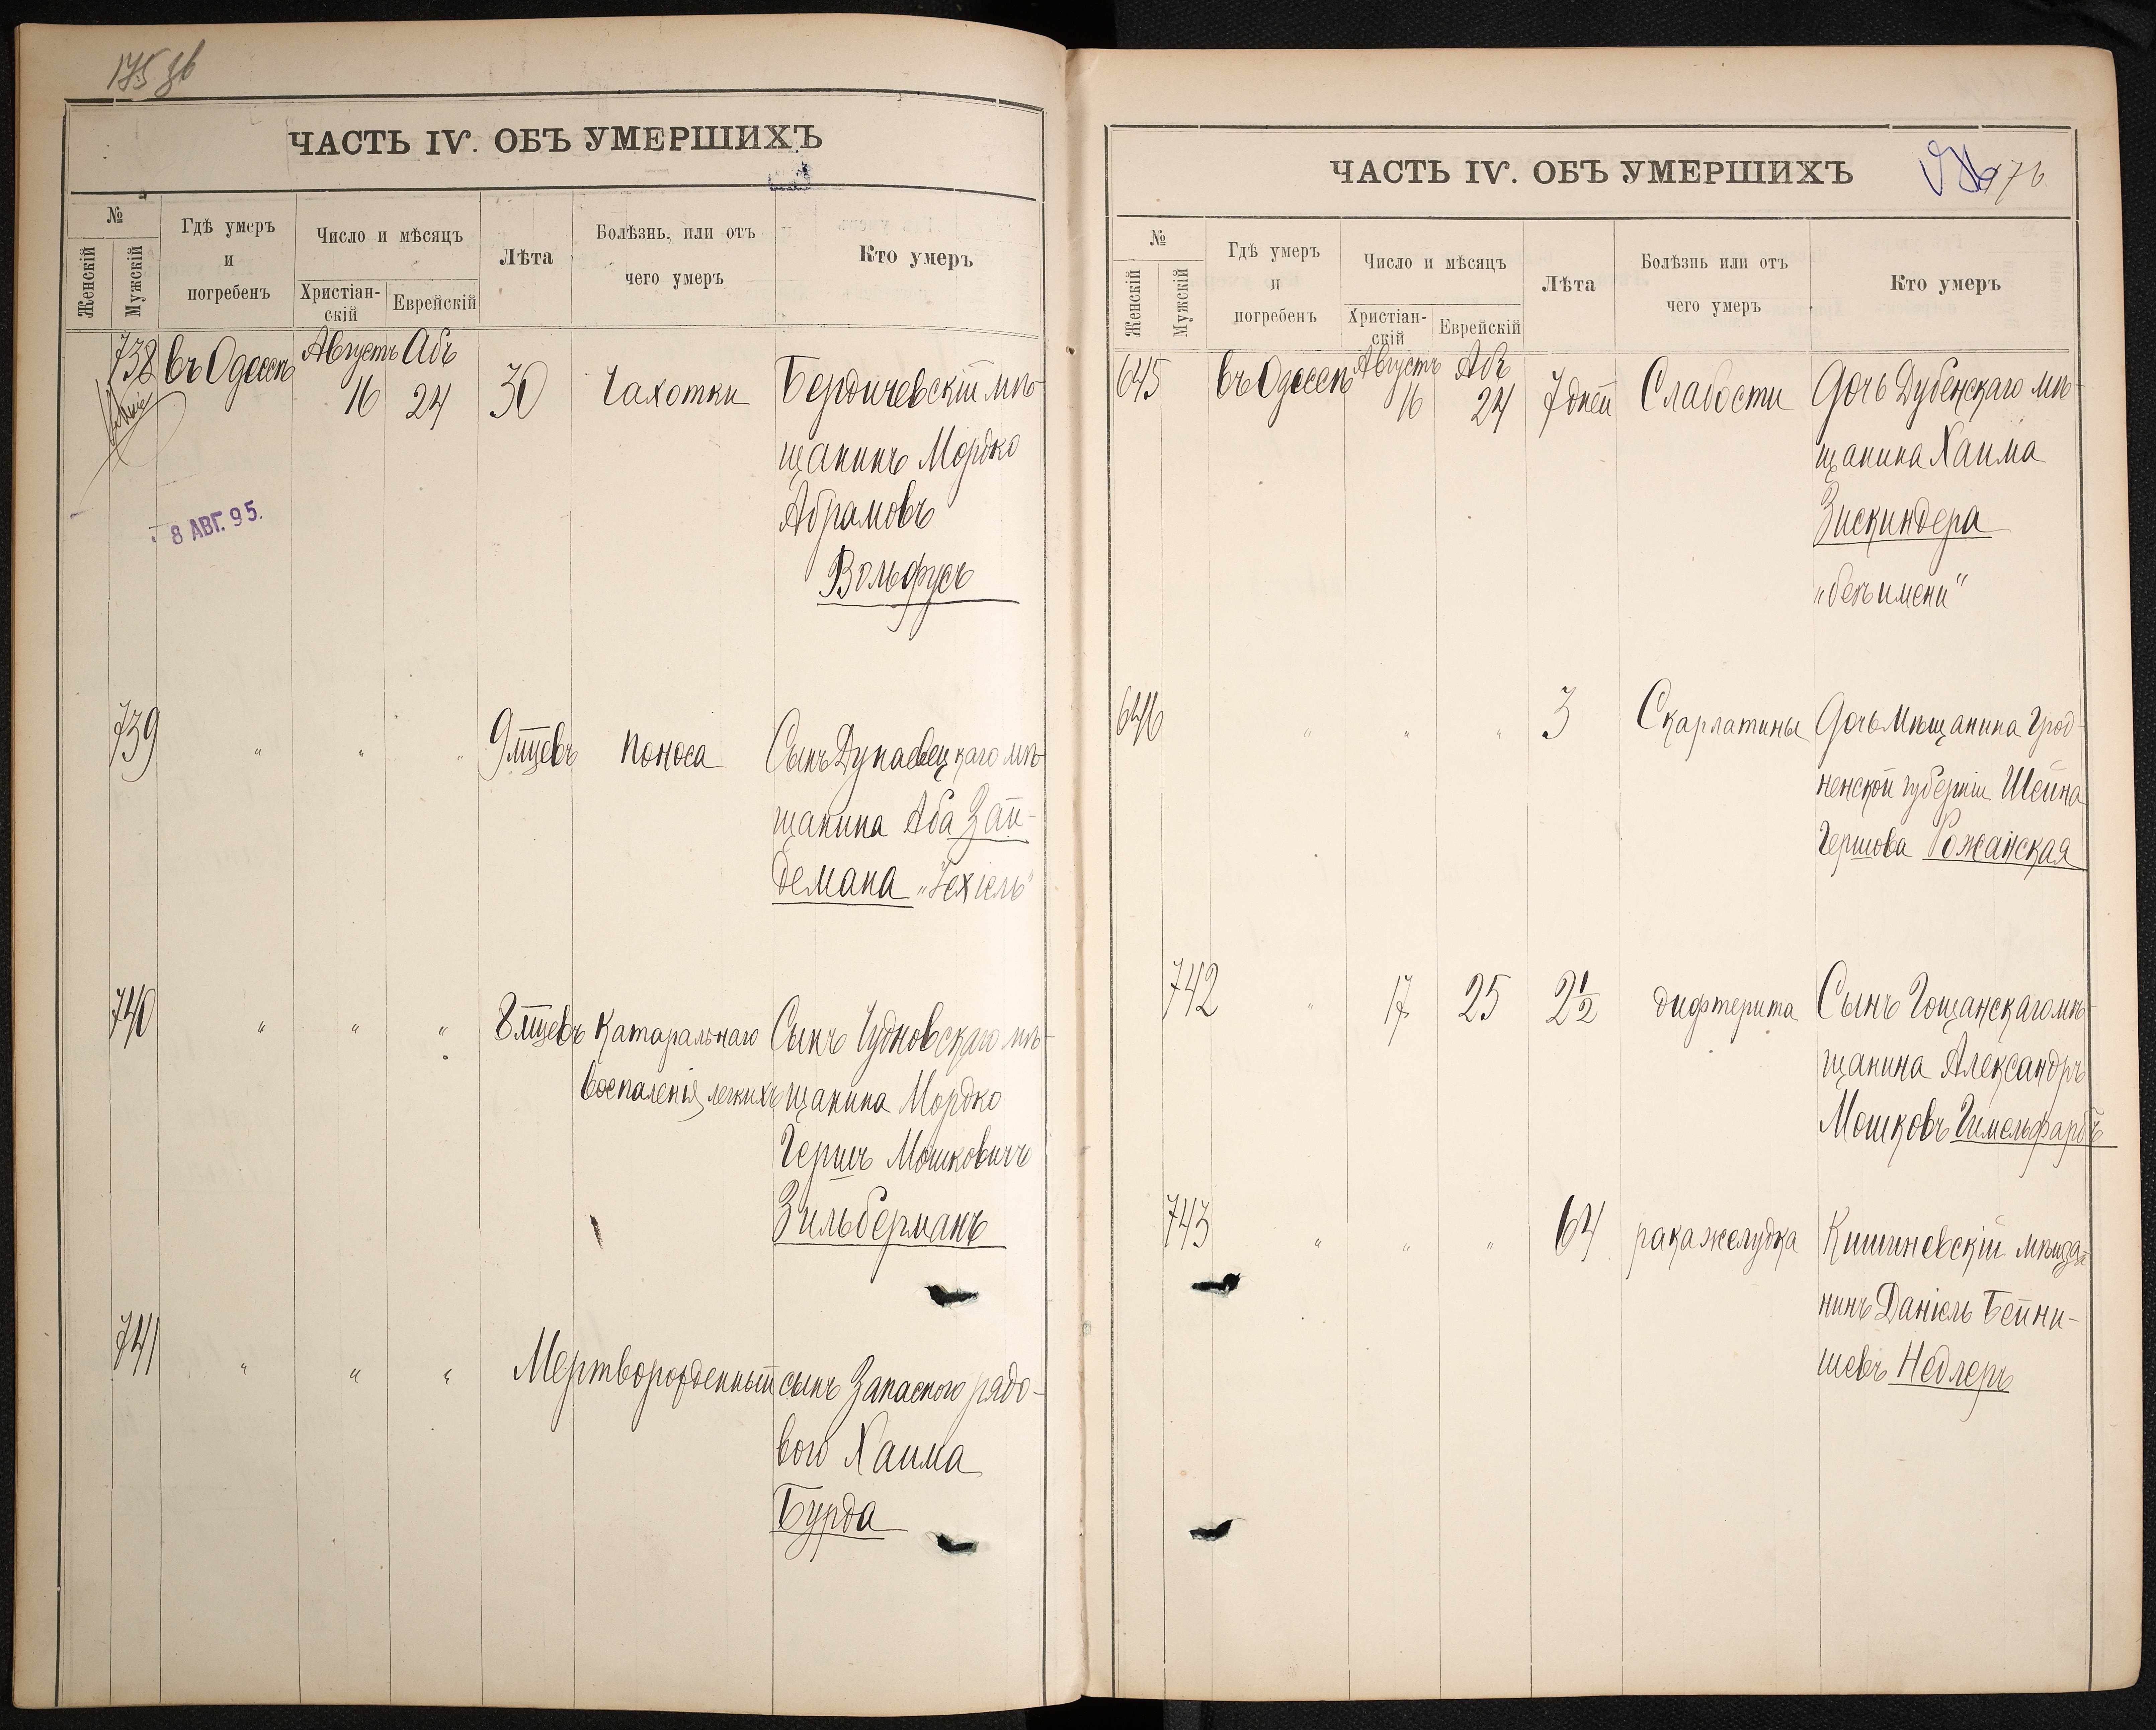 175 об
ЧАСТЬ IV. ОБЪ УМЕРШИХЪ
№
Женскій
Мужскій
Гдѣ умеръ и погребенъ
Число и мѣсяцъ
Христіан-скій
Еврейскій
Лѣта
Болѣзнь, или отъ чего умеръ
Кто умеръ
738 въ Одессѣ Августъ 16 Абъ 24 30 Чахотки Бердичевскій мѣ-
щанинъ Мордко
Абрамовъ
Вольфусъ
8 АВГ. 95.
739 " " " 9 мцевъ поноса Сынъ Дунаевецкаго мѣ-
щанина Аба Зай-
демана „Іехіель"
740 " " " 8 мцевъ Катаральнаго Сынъ Чудновскаго мѣ-
воспаленія легкихъ щанина Мордко
Гершъ Мошковичъ
Зильберманъ
741 " " " Мертворожденный сынъ Запасного рядо-
вого Хаима
Бурда
ЧАСТЬ IV. ОБЪ УМЕРШИХЪ
176
№
Женскій
Мужскій
Гдѣ умеръ и погребенъ
Число и мѣсяцъ
Христіан-скій
Еврейскій
Лѣта
Болѣзнь или отъ чего умеръ
Кто умеръ
645 въ Одессѣ Августъ 16 Абъ 24 7 дней Слабости Дочь Дубенскаго мѣ-
щанина Хаима
Зискиндера
„безъ имени"
646 " " " 3 Скарлатины Дочь Мѣщанина Грод-
ненской губерніи Шейна
Гершова Рожанская
742 " 17 25 2 1/2 дифтерита Сынъ Гощанскаго мѣ-
щанина Александръ
Мошковъ Гимельфарбъ
743 " " " 64 рака желудка Кишиневскій мѣща-
нинъ Даніель Бейни-
шевъ Недлеръ